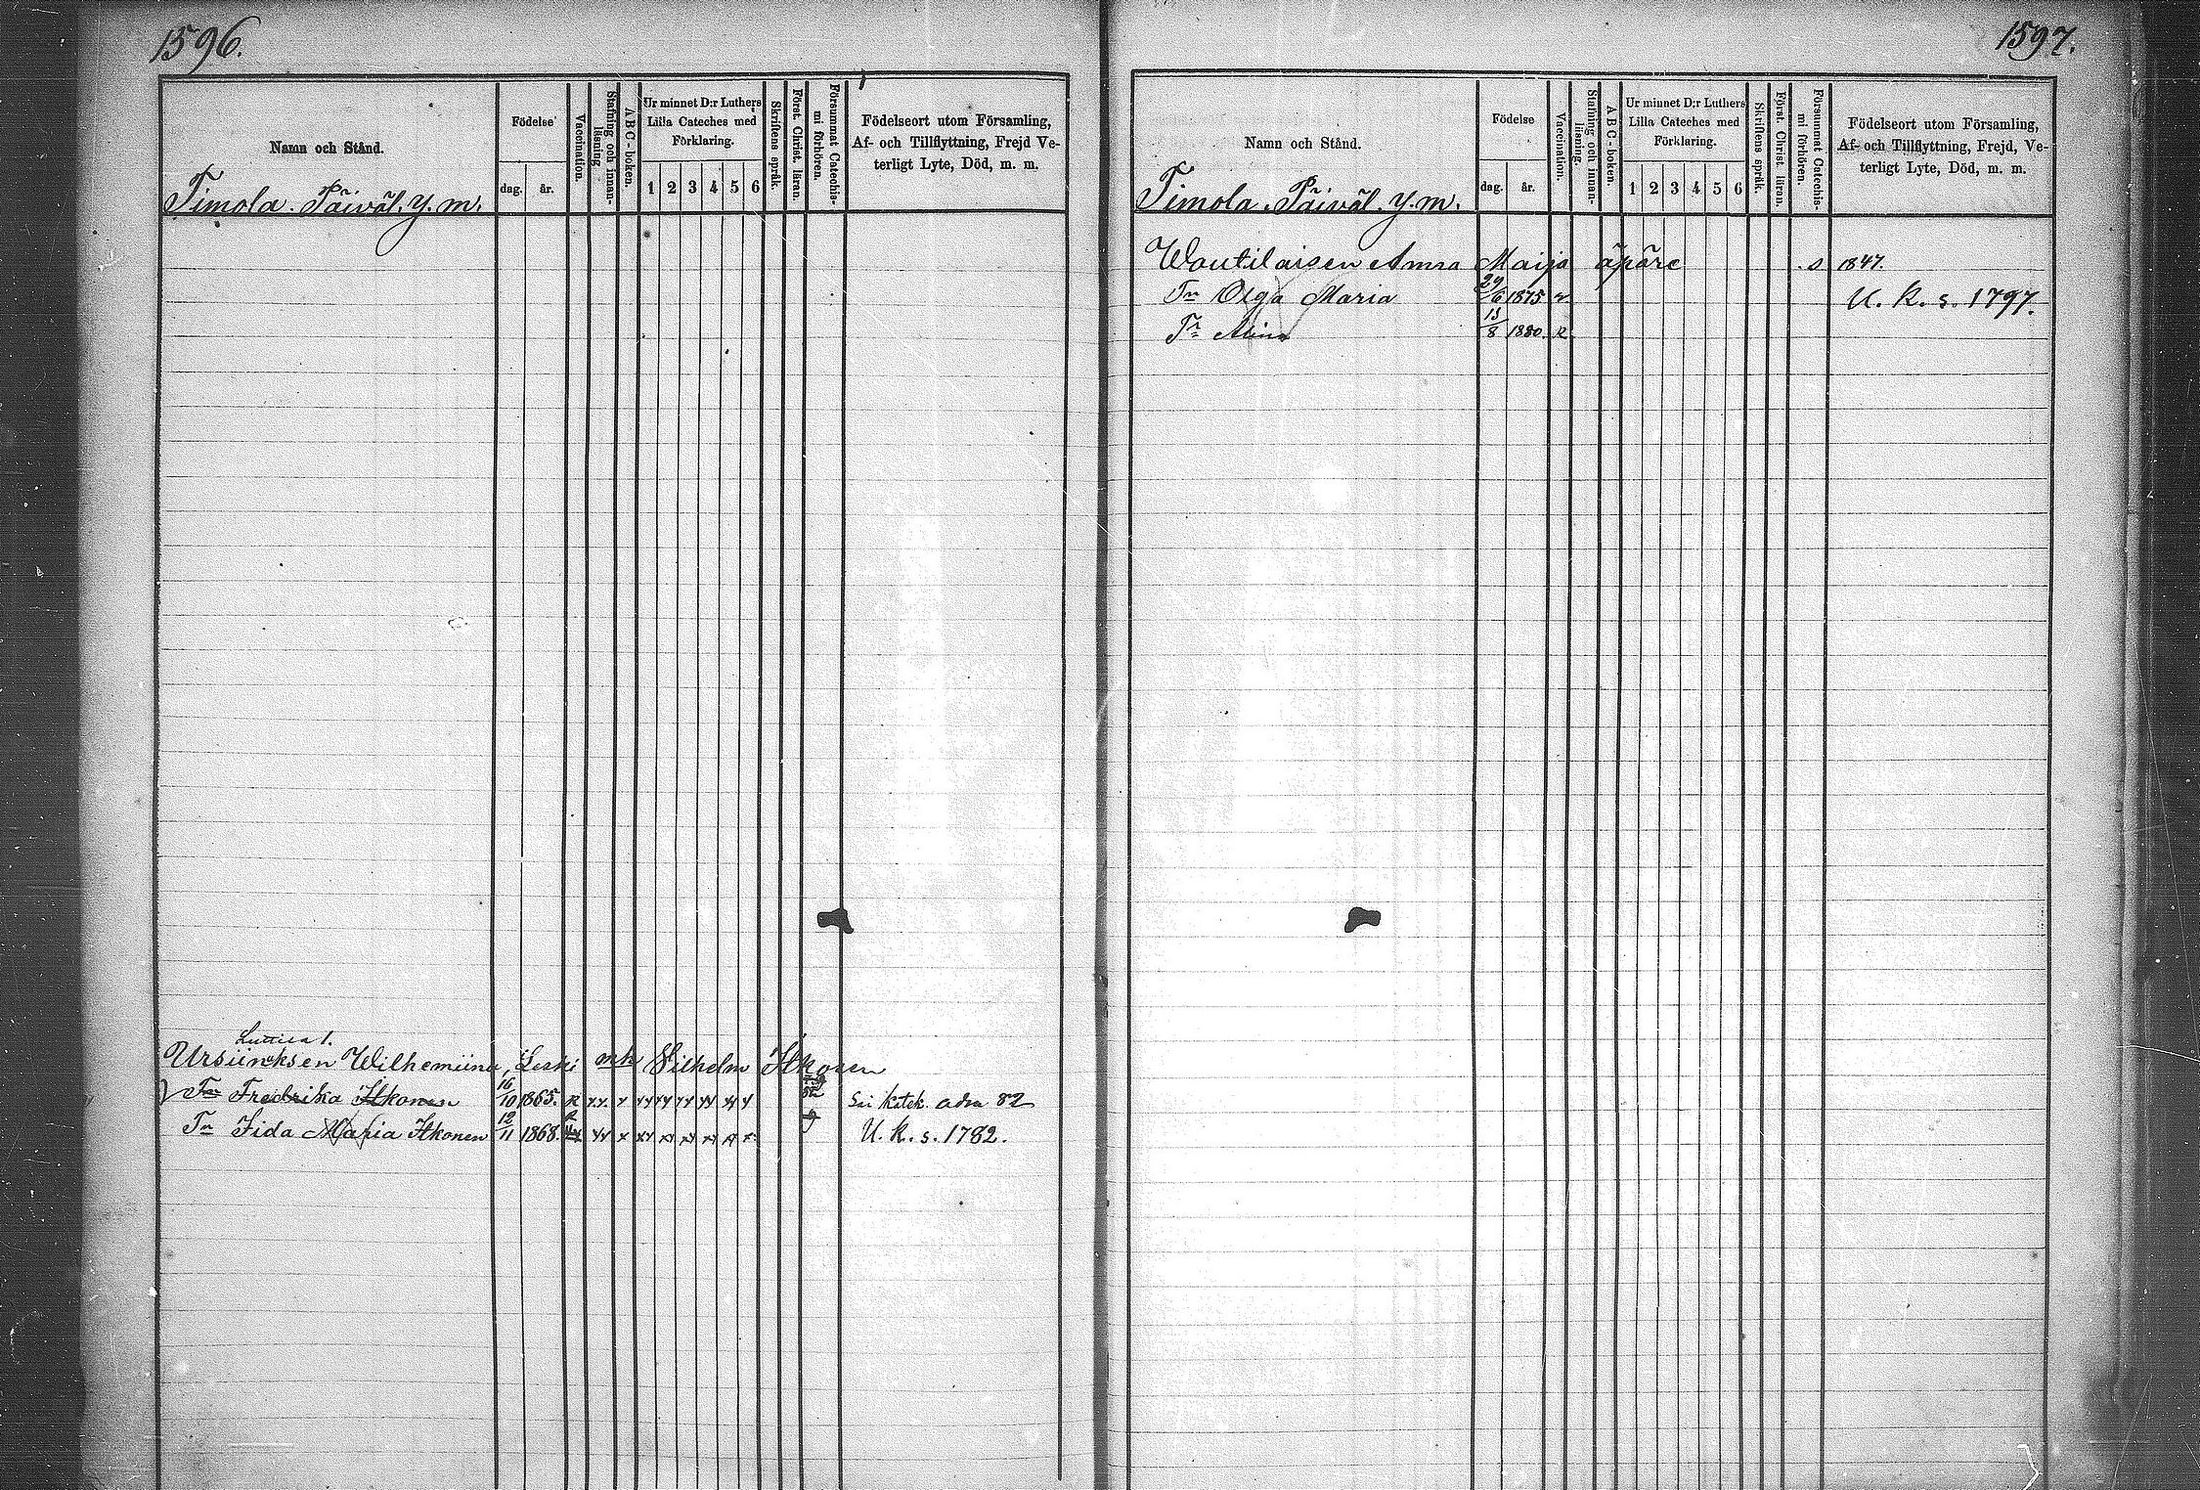 1596.
Namn och Stånd.
Födelse
dag. år.
Vaccination.
Stafning och innan-
läsning
A B C - boken.
Ur minnet D:r Luthers
Lilla Cateches med
Förklaring.
1 2 3 4 5 6
Skriftens språk.
Först. Christ. läran.
Försummat Catechis-
mi förhören.
Födelseort utom Församling,
Af- och Tillflyttning, Frejd Ve-
terligt Lyte, Död, m. m.
Timola. Päiväl. y. m.
Ursiinksen Wilhemiina, Leski mk Vilhelm Itkonen
Tr Fredrika Itkonen 16/10 1865. R Sai Katek. adra 82
Tr Fida Maria Itkonen 12/11 1868. U. K. s. 1782.
1597.
Namn och Stånd.
Födelse
dag. år.
Vaccination.
Stafning och innan-
läsning.
A B C - boken.
Ur minnet D:r Luthers
Lilla Cateches med
Förklaring.
1 2 3 4 5 6
Skriftens språk.
Först. Christ. läran.
Försummat Catechis-
mi förhören.
Födelseort utom Församling,
Af- och Tillflyttning, Frejd, Ve-
terligt Lyte, Död, m. m.
Timola. Päiväl. y. m.
Woutilaisen Anna Maija äpäre s 1847.
Tr Olga Maria 29/6 1875 U. K. s. 1797.
Tr Miina 13/8 1880. R